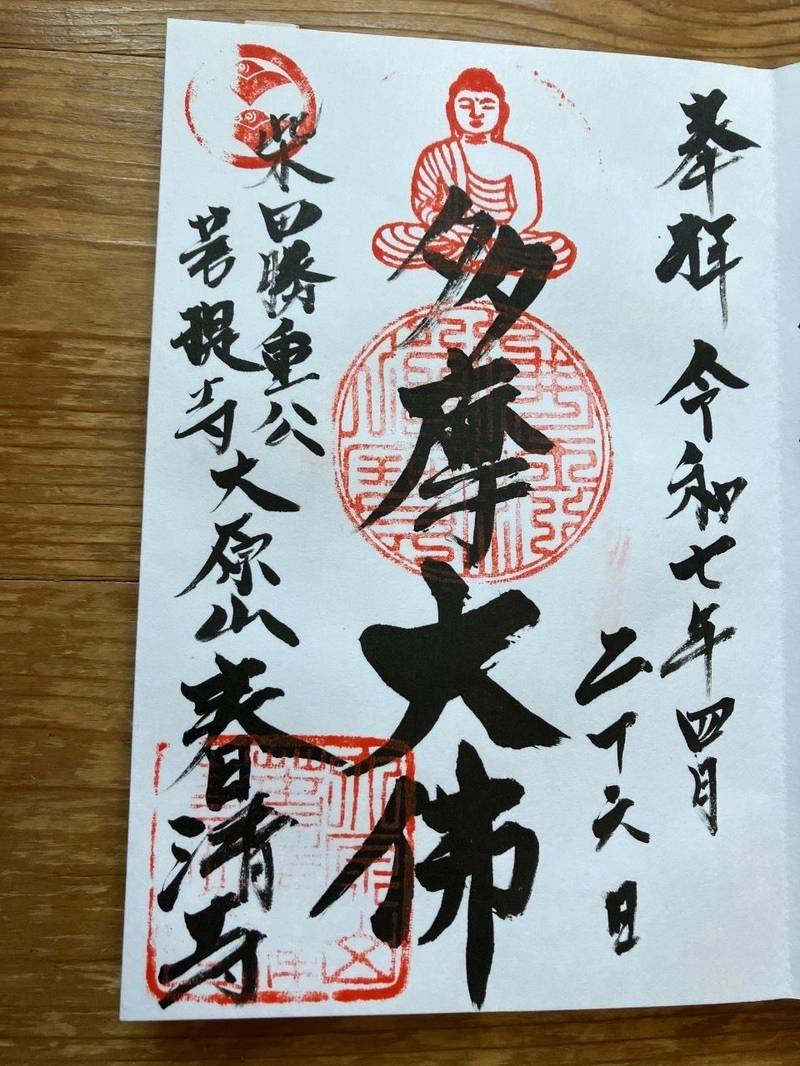 奉拝 令和七年四月
二十六日
多摩大佛
柴田勝重公
菩提寺大原山春清寺